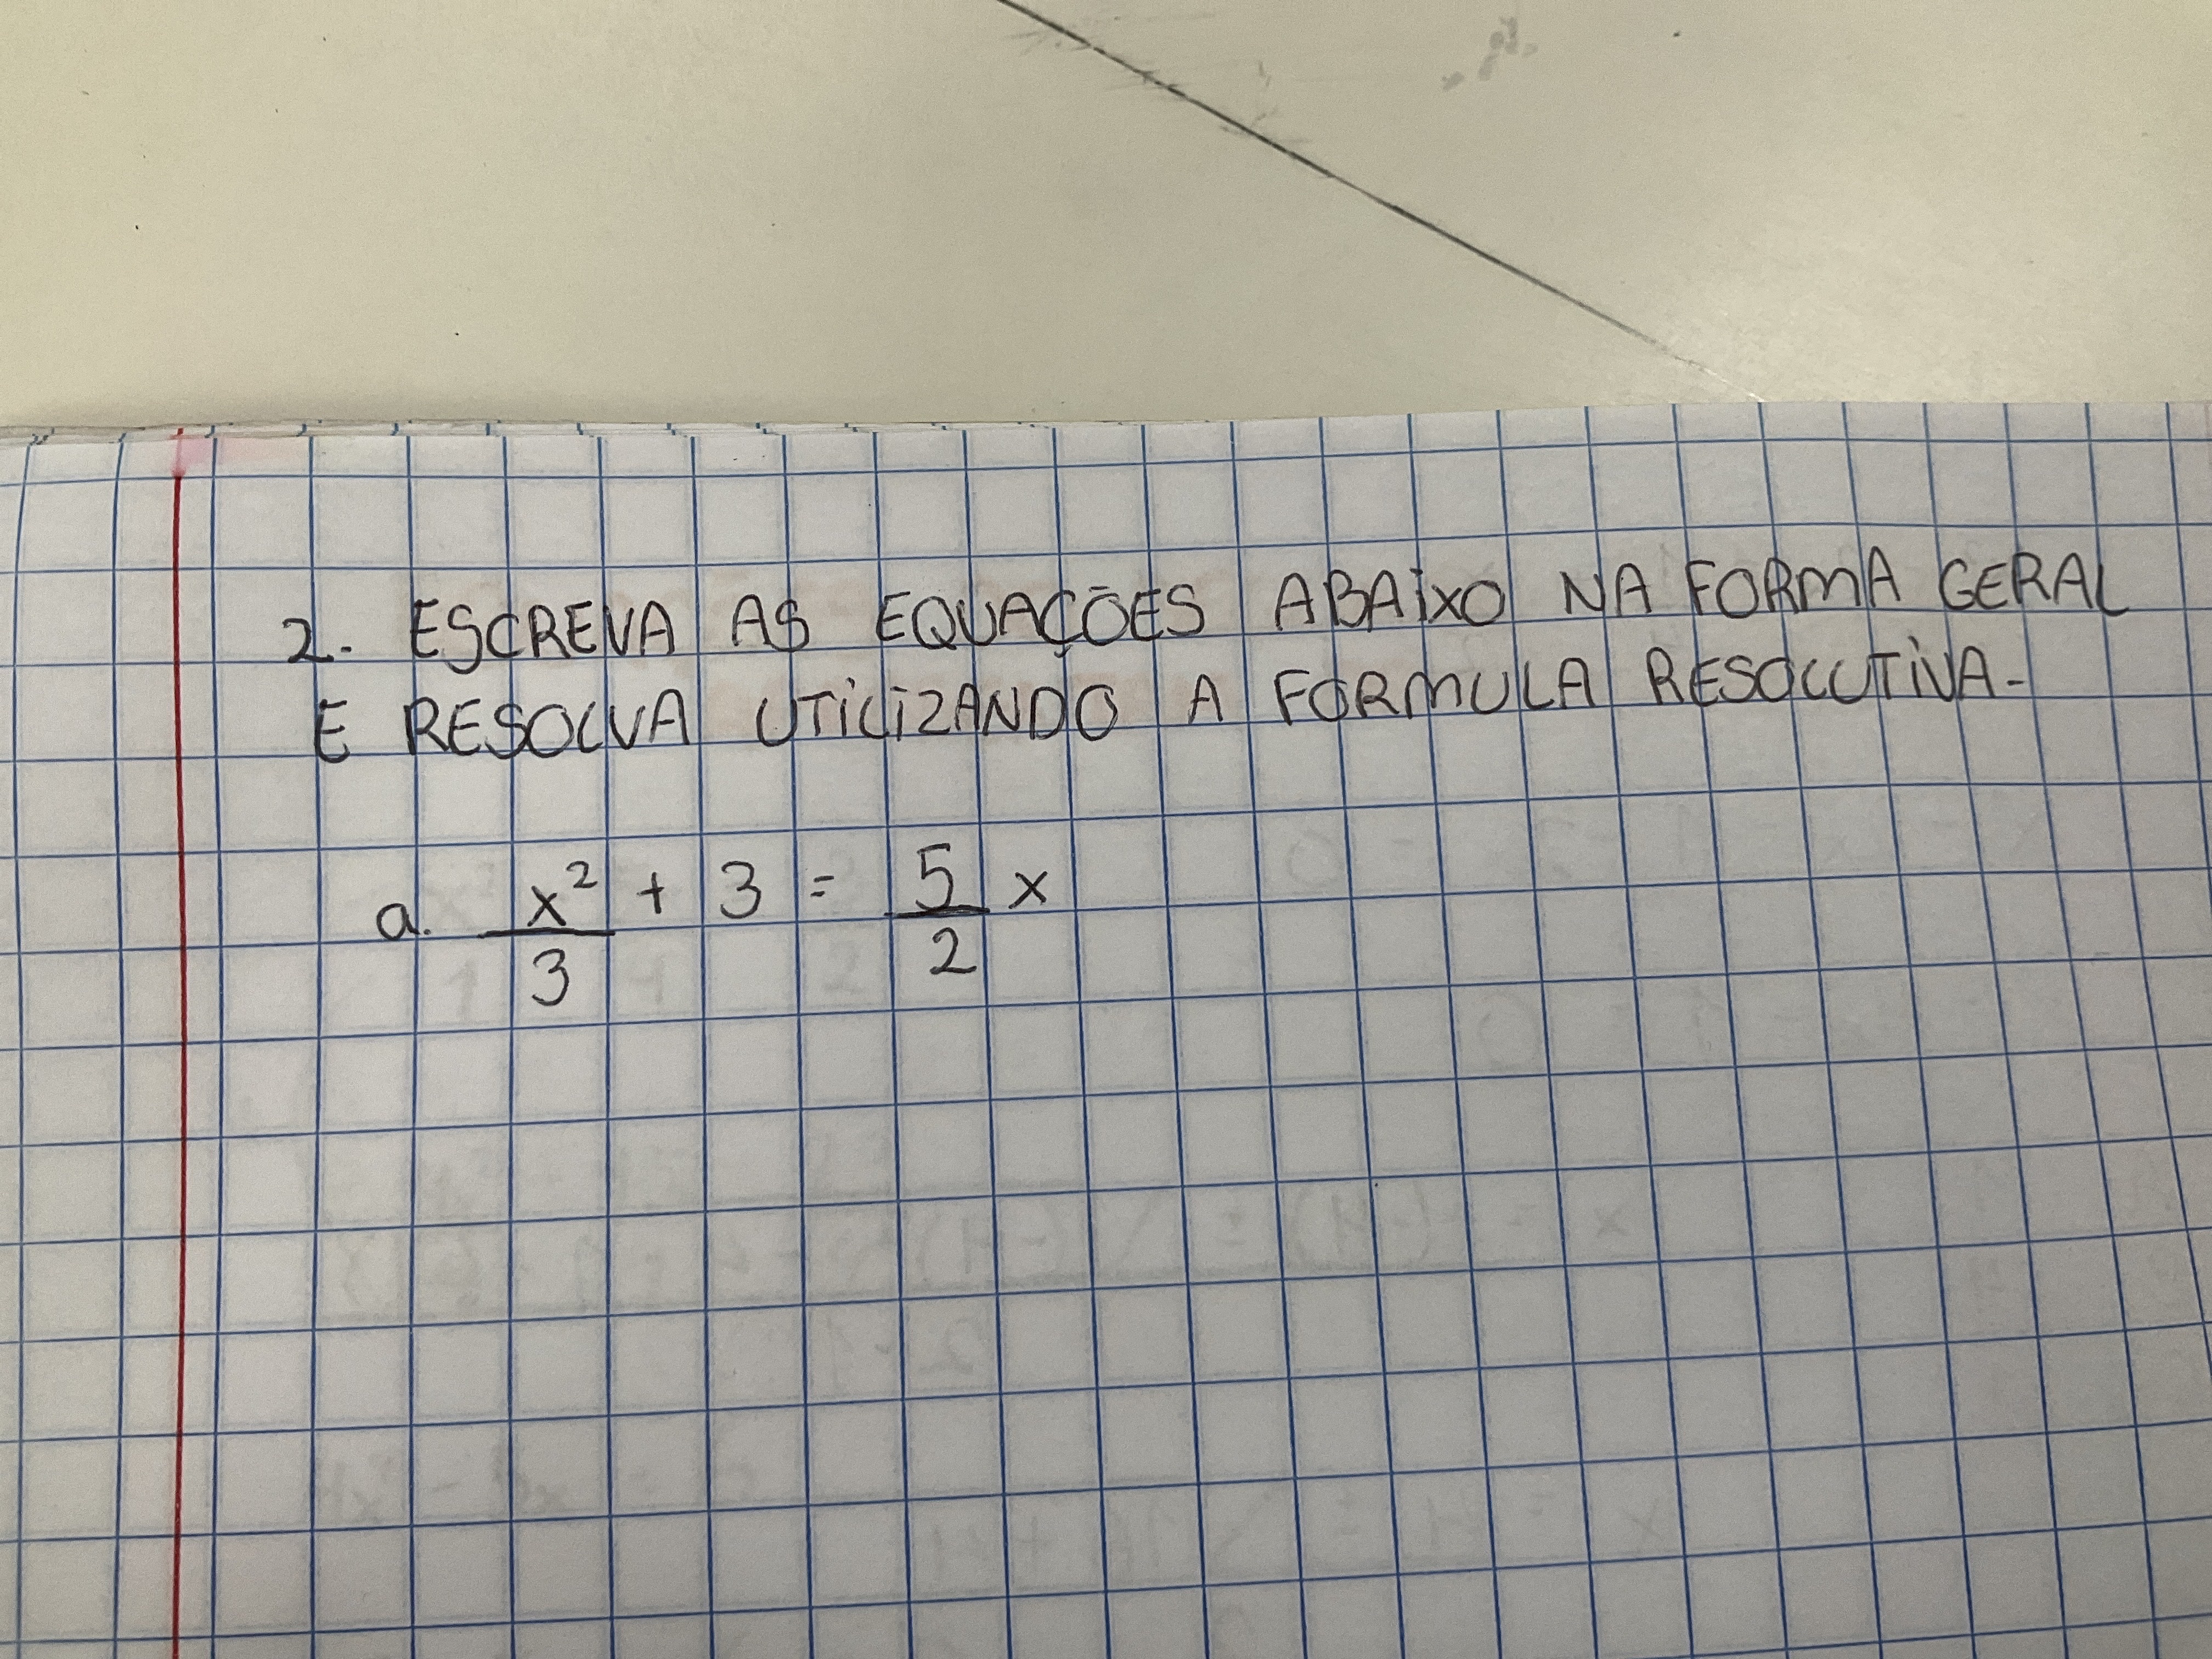 2. ESCREVA AS EQUAÇÕES ABAIXO NA FORMA GERAL
E RESOLVA UTILIZANDO A FORMULA RESOLUTIVA.
a. x²/3 + 3 = 5/2 x